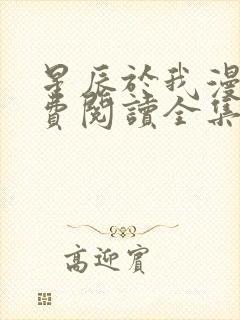 星辰於我漫
費閱讀全集
高迎賓